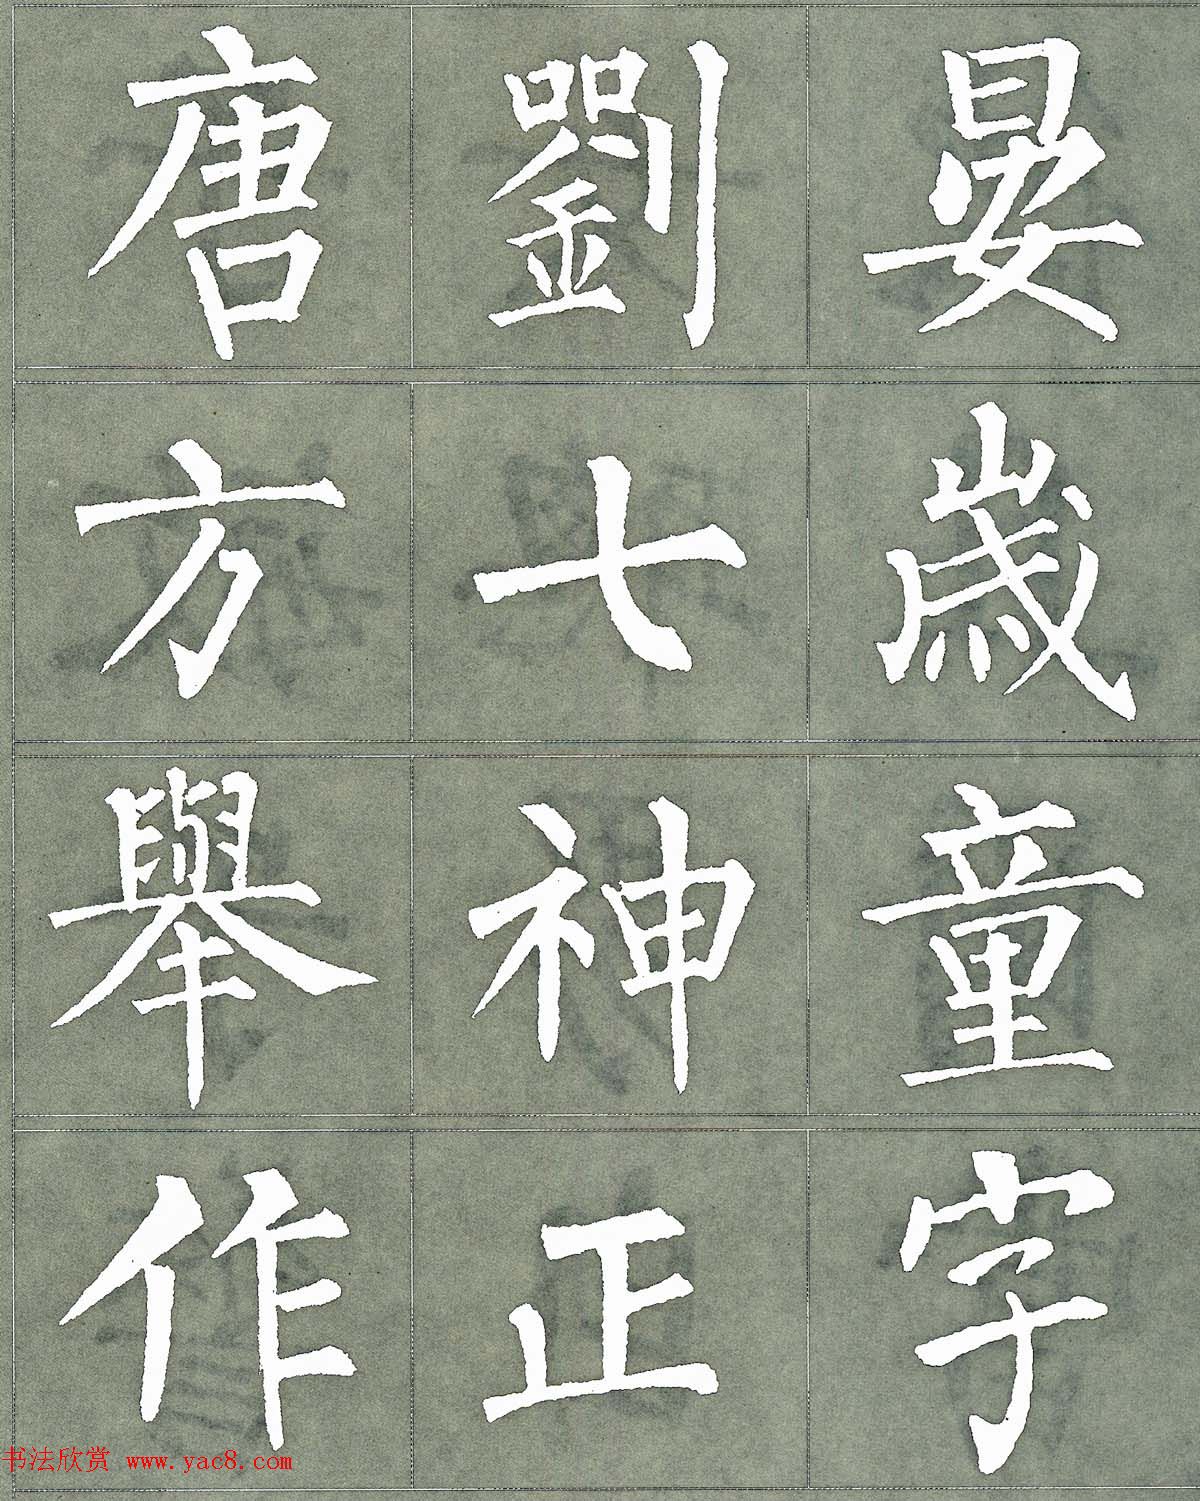 唐劉晏
方七歲
舉神童
作正字
书法欣赏 www.yac8.com